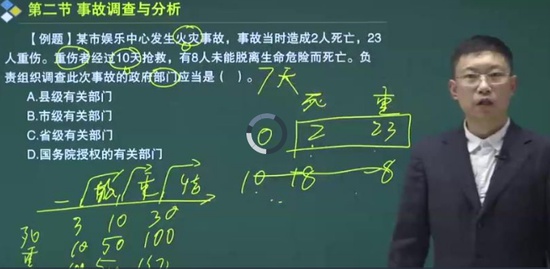 第二节 事故调查与分析
【例题】某市娱乐中心发生火灾事故，事故当时造成2人死亡，23
人重伤。重伤者经过10天抢救，有8人未能脱离生命危险而死亡。负
责组织调查此次事故的政府部门应当是（ ）。
7天
A.县级有关部门
B.市级有关部门
C.省级有关部门
D.国务院授权的有关部门
死 重
0 2 23
10 +8 8
一
3 10 30
死 10 50 100
重